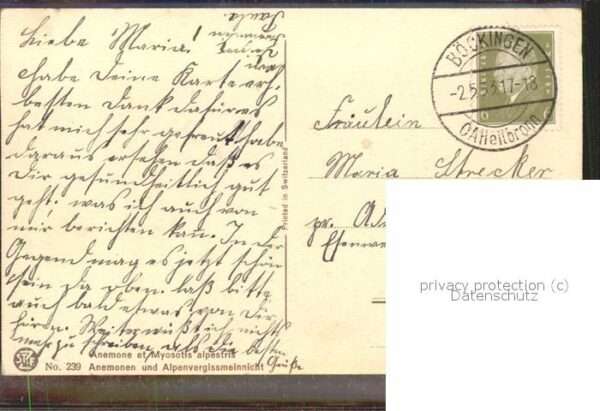 Liebe Maria!
habe Deine Karte erh.
besten Dank dafür es
hat mich sehr gefreut habe
daraus ersehen daß es
Dir gesundheitlich gut
geht. was ich auch von
mir berichten kan. In der
Gegend mag es jetzt schön
sein da oben. laß bitte
auch bald etwas von Dir
hören. Weiter wüßt ich nichts
mehr zu schreiben, als die besten
Grüße
Paula.
Anemone et Myosotis alpestris
No. 239 Anemonen und Alpenvergissmeinnicht
Printed in Switzerland
BÖCKINGEN
-2.5.33.17-18
OAHeilbronn
Fräulein
Maria Strecker
pr. Ad
privacy protection (c)
Datenschutz